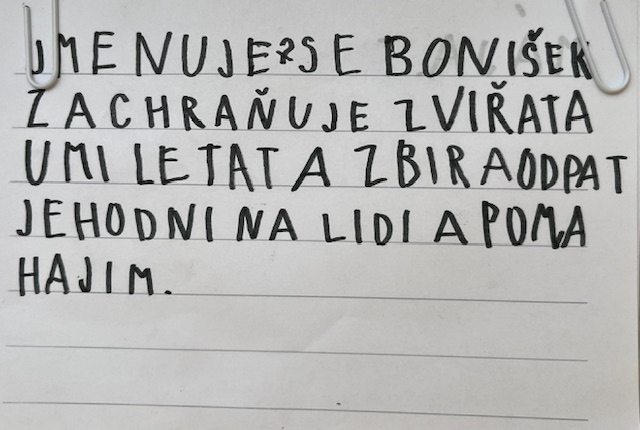 JMENUJE SE BONIŠEK
ZACHRAŇUJE ZVIŘATA
UMI LETAT A ZBIRAODPAT
JEHODNI NA LIDI A POMA
HAJIM.